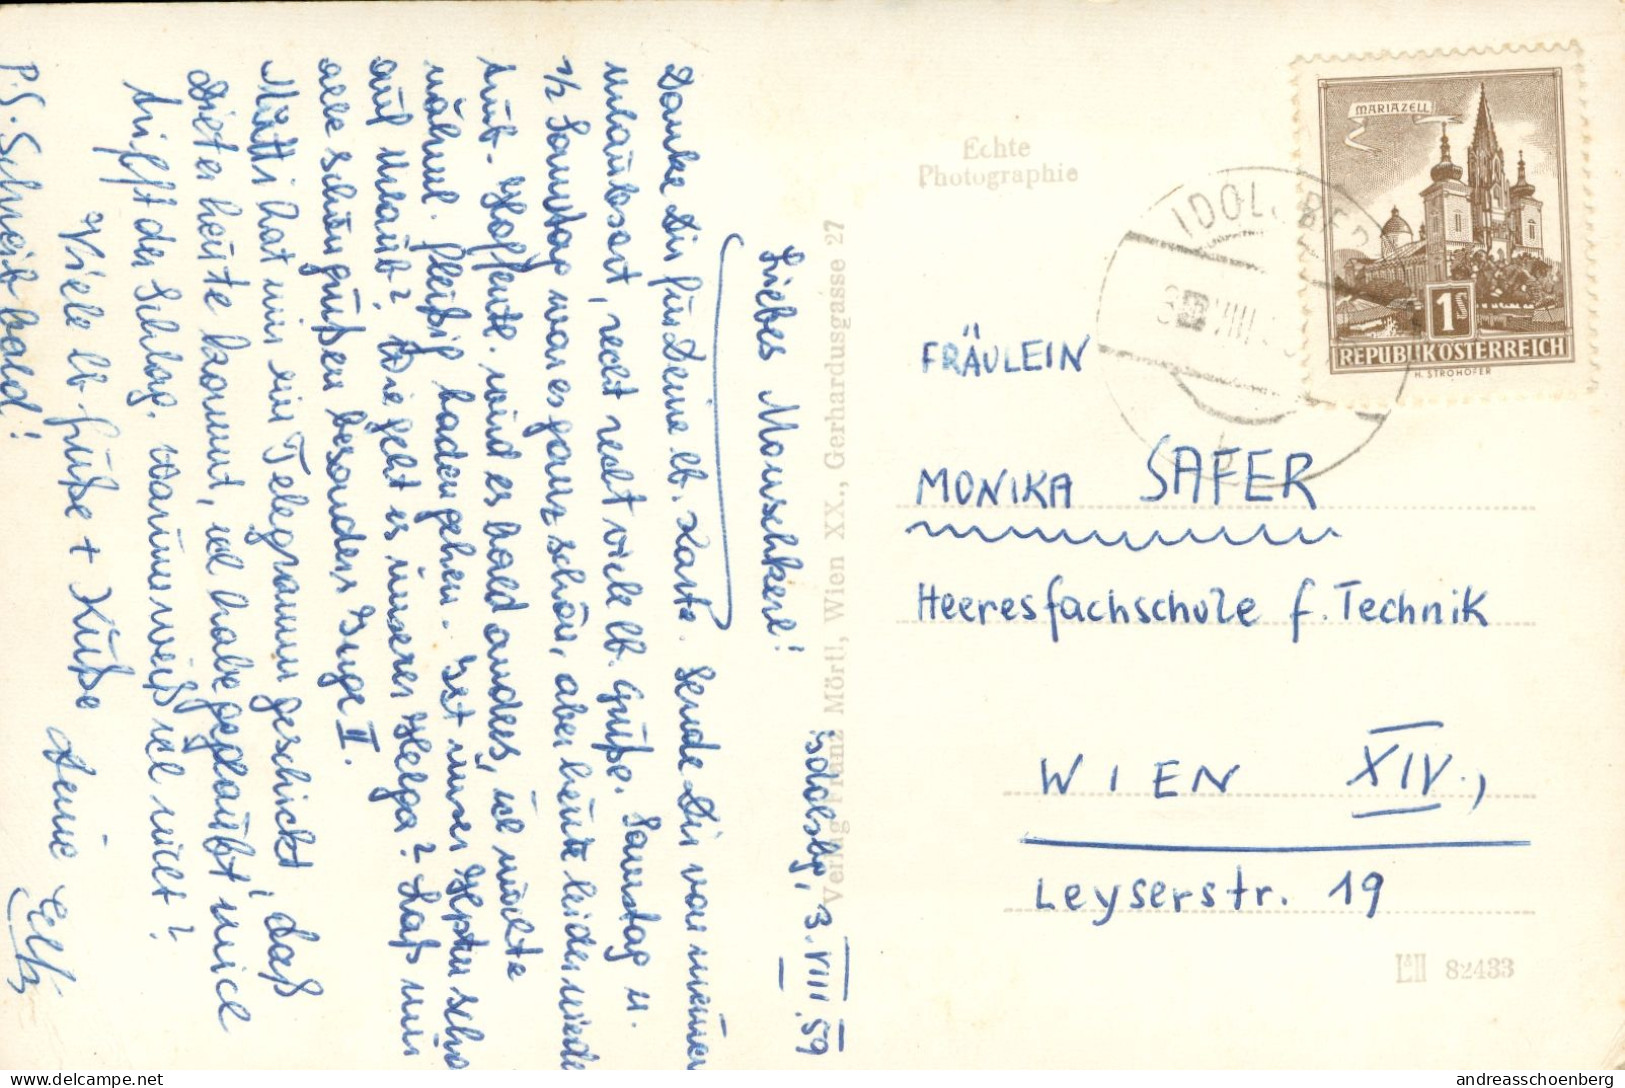 Idolsbg, 3. VIII. 59
Liebes Monschkerl!
Danke Dir für Deine lb. Karte. Sende Dir von meinem
Urlaubsort, recht recht viele lb. Grüße. Samstag u.
1/2 Sonntag war es ganz schön, aber heute leider wieder
trüb. Hoffentl. wird es bald anders, ich möchte
nähml. fleißig baden gehen. Ist unser Hptm schon
auf Urlaub? Wie geht es unserer Helga? Laß mir
alle schön grüßen besonders Gruge II.
Mutti hat mir ein Telegramm geschickt, daß
Dieter heute kommt, ich habe geglaubt mich
trifft der Schlag. Warum weiß ich nicht?
Viele lb. Grüße + Küße
Deine
P.S. Schreib bald!
Echte
Photographie
Verlag Franz Mörtl, Wien XX., Gerhardusgasse 27
MARIAZELL
1S
REPUBLIK ÖSTERREICH
H. STROHOFER
IDOL
VIII
b
FRÄULEIN
MONIKA SAFER
Heeresfachschule f. Technik
WIEN XIV.,
Leyserstr. 19
82433
andreasschoenberg